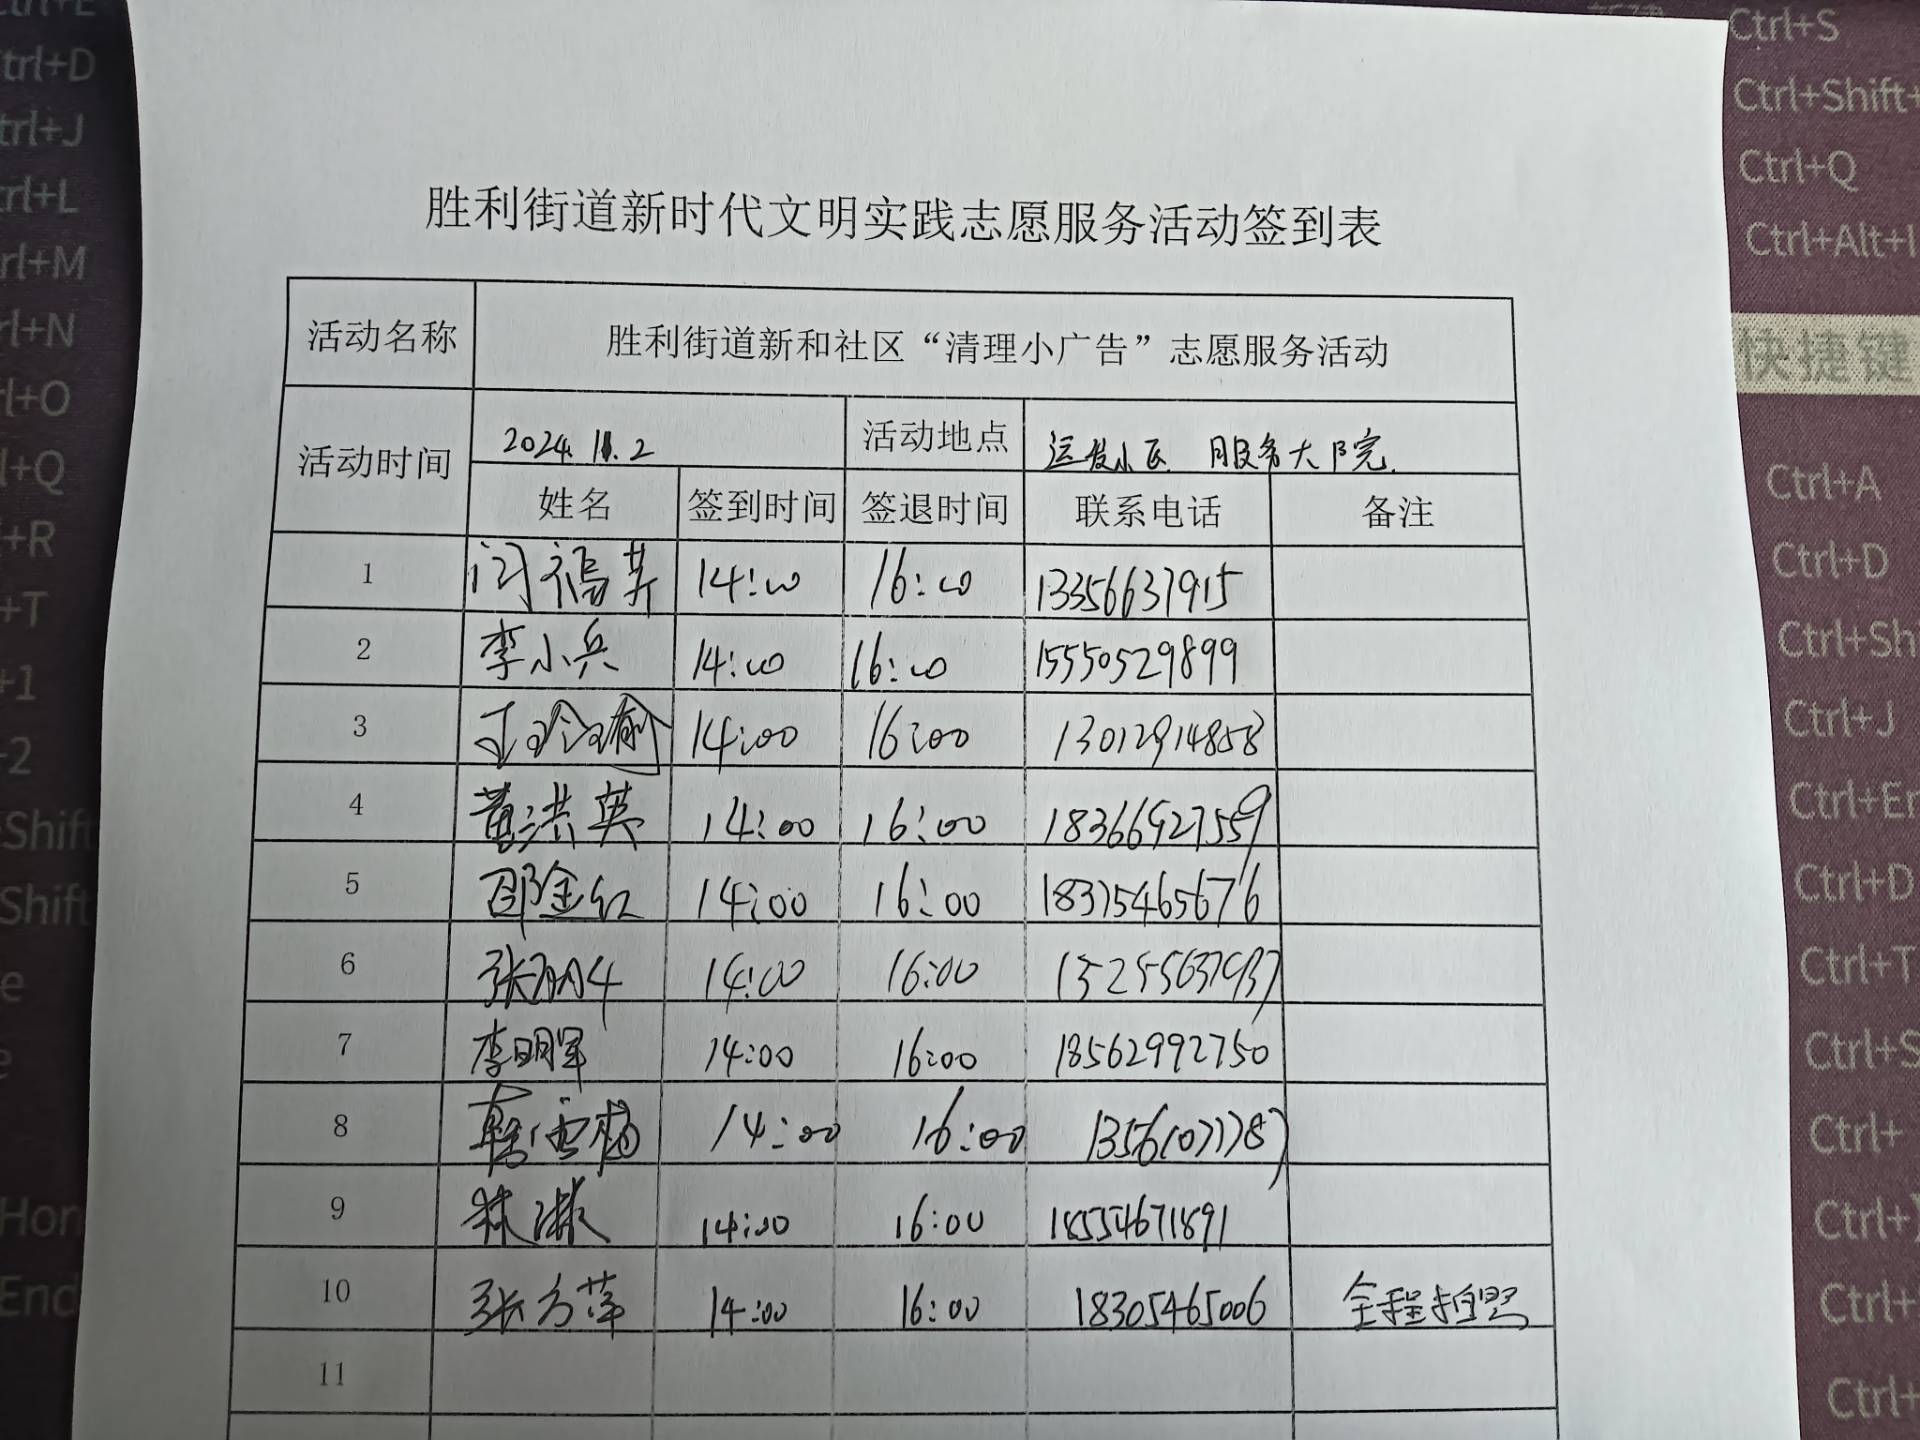 胜利街道新时代文明实践志愿服务活动签到表
活动名称 胜利街道新和社区“清理小广告”志愿服务活动
活动时间 2024.11.2 活动地点 运发小区 服务大院
姓名 签到时间 签退时间 联系电话 备注
1 闫福芹 14:00 16:00 13356637915
2 李小兵 14:00 16:00 15550529899
3 王玲瑜 14:00 16:00 13012914858
4 黄洪英 14:00 16:00 18366927559
5 邵金红 14:00 16:00 18375465676
6 14:00 16:00 15255637937
7 李明军 14:00 16:00 18562992750
8 韩雪梅 14:00 16:00
9 林淑 14:00 16:00 18554671891
10 张方萍 14:00 16:00 18305465006 全程拍照
11
Ctrl+E
Ctrl+D
Ctrl+J
Ctrl+L
rl+M
rl+N
rl+O
l+Q
+R
+T
+1
-2
Shift
Shift
e
e
Hom
End
Ctrl+S
Ctrl+Shift+
Ctrl+Q
Ctrl+Alt+I
快捷键
Ctrl+A
Ctrl+D
Ctrl+Sh
Ctrl+J
Ctrl+En
Ctrl+D
Ctrl+T
Ctrl+S
Ctrl+
Ctrl+]
Ctrl+
Ctrl+